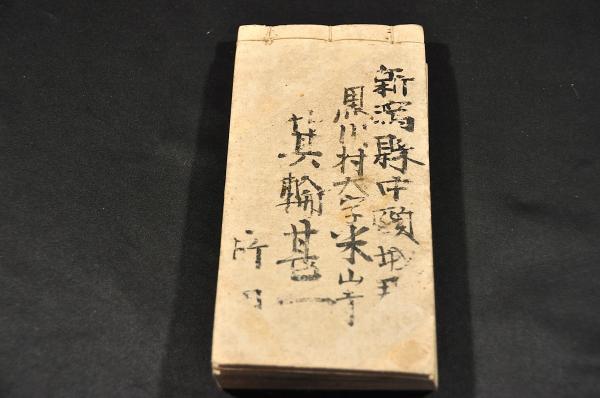 新潟縣中頸城郡
黒川村大字米山寺
箕輪甚一
所用